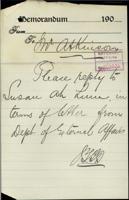 Memorandum 190
From
To Mr Atkinson
Please reply to
Susan Ah Lime, in
terms of letter from
Dept of External Affairs